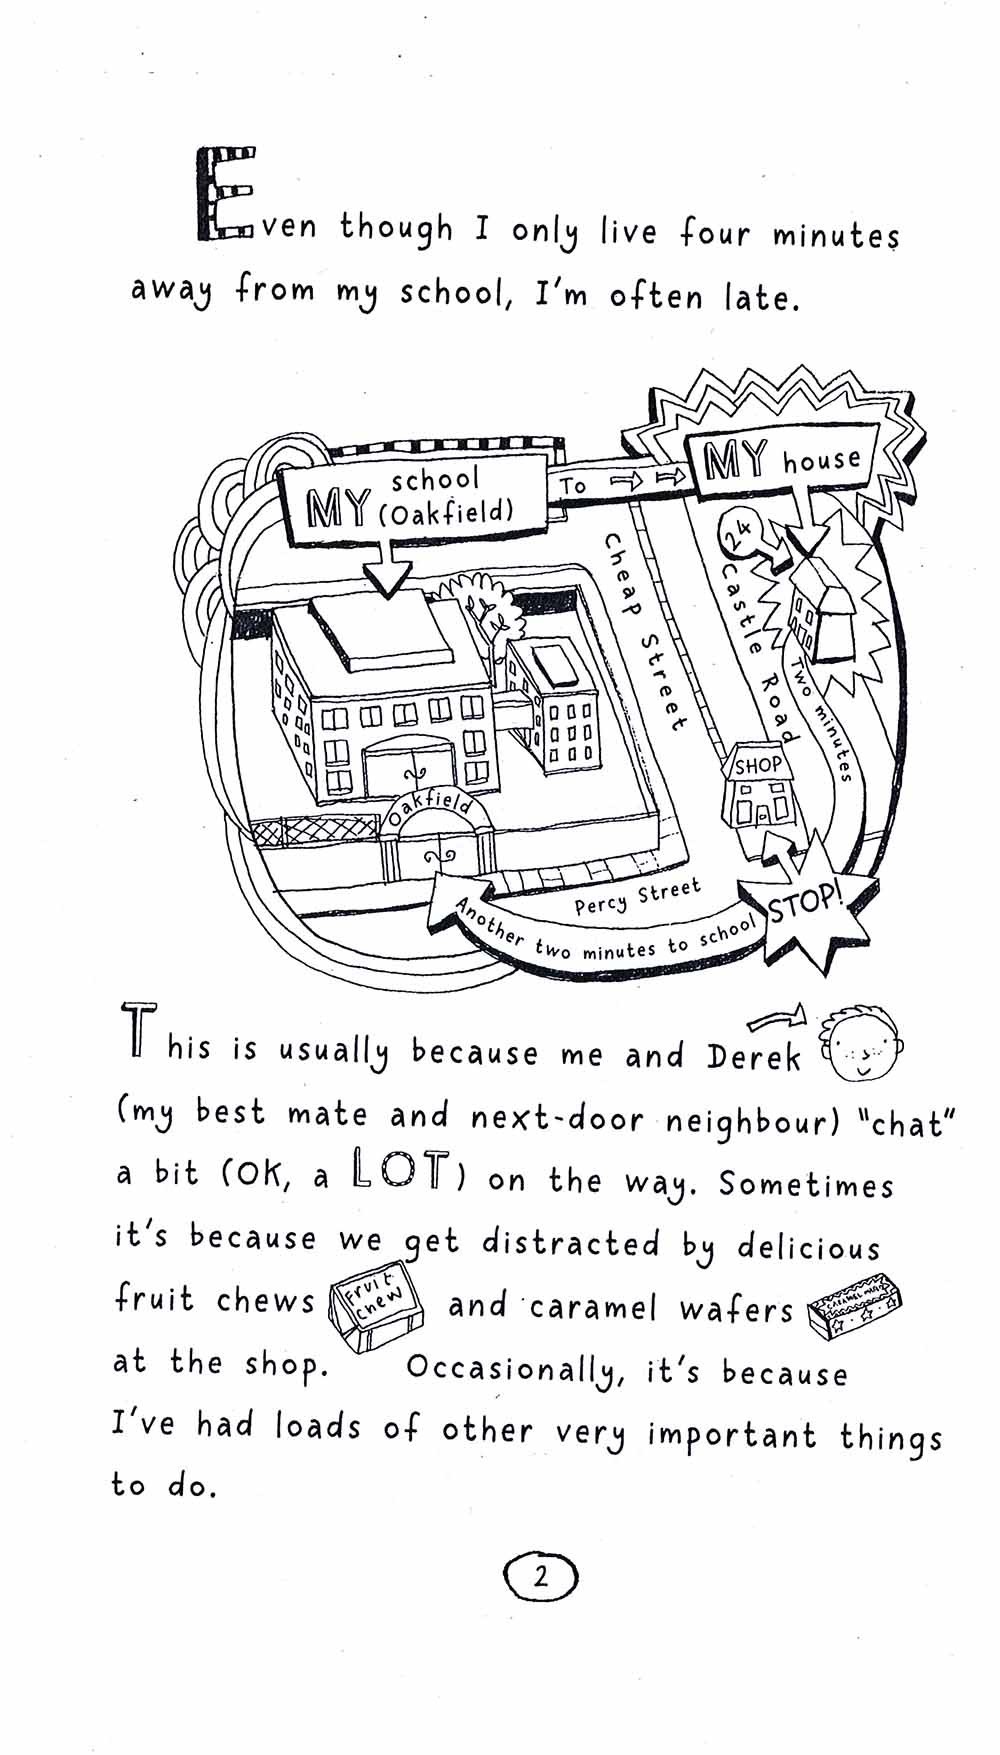 Even though I only live four minutes
away from my school, I'm often late.
MY school
(Oakfield)
To
MY house
24
Cheap Street
Castle Road
Two minutes
SHOP
Oakfield
STOP!
Percy Street
Another two minutes to school
This is usually because me and Derek
(my best mate and next-door neighbour) "chat"
a bit (OK, a LOT) on the way. Sometimes
it's because we get distracted by delicious
fruit chews
FRUIT
CHEW
and caramel wafers
at the shop. Occasionally, it's because
I've had loads of other very important things
to do.
2